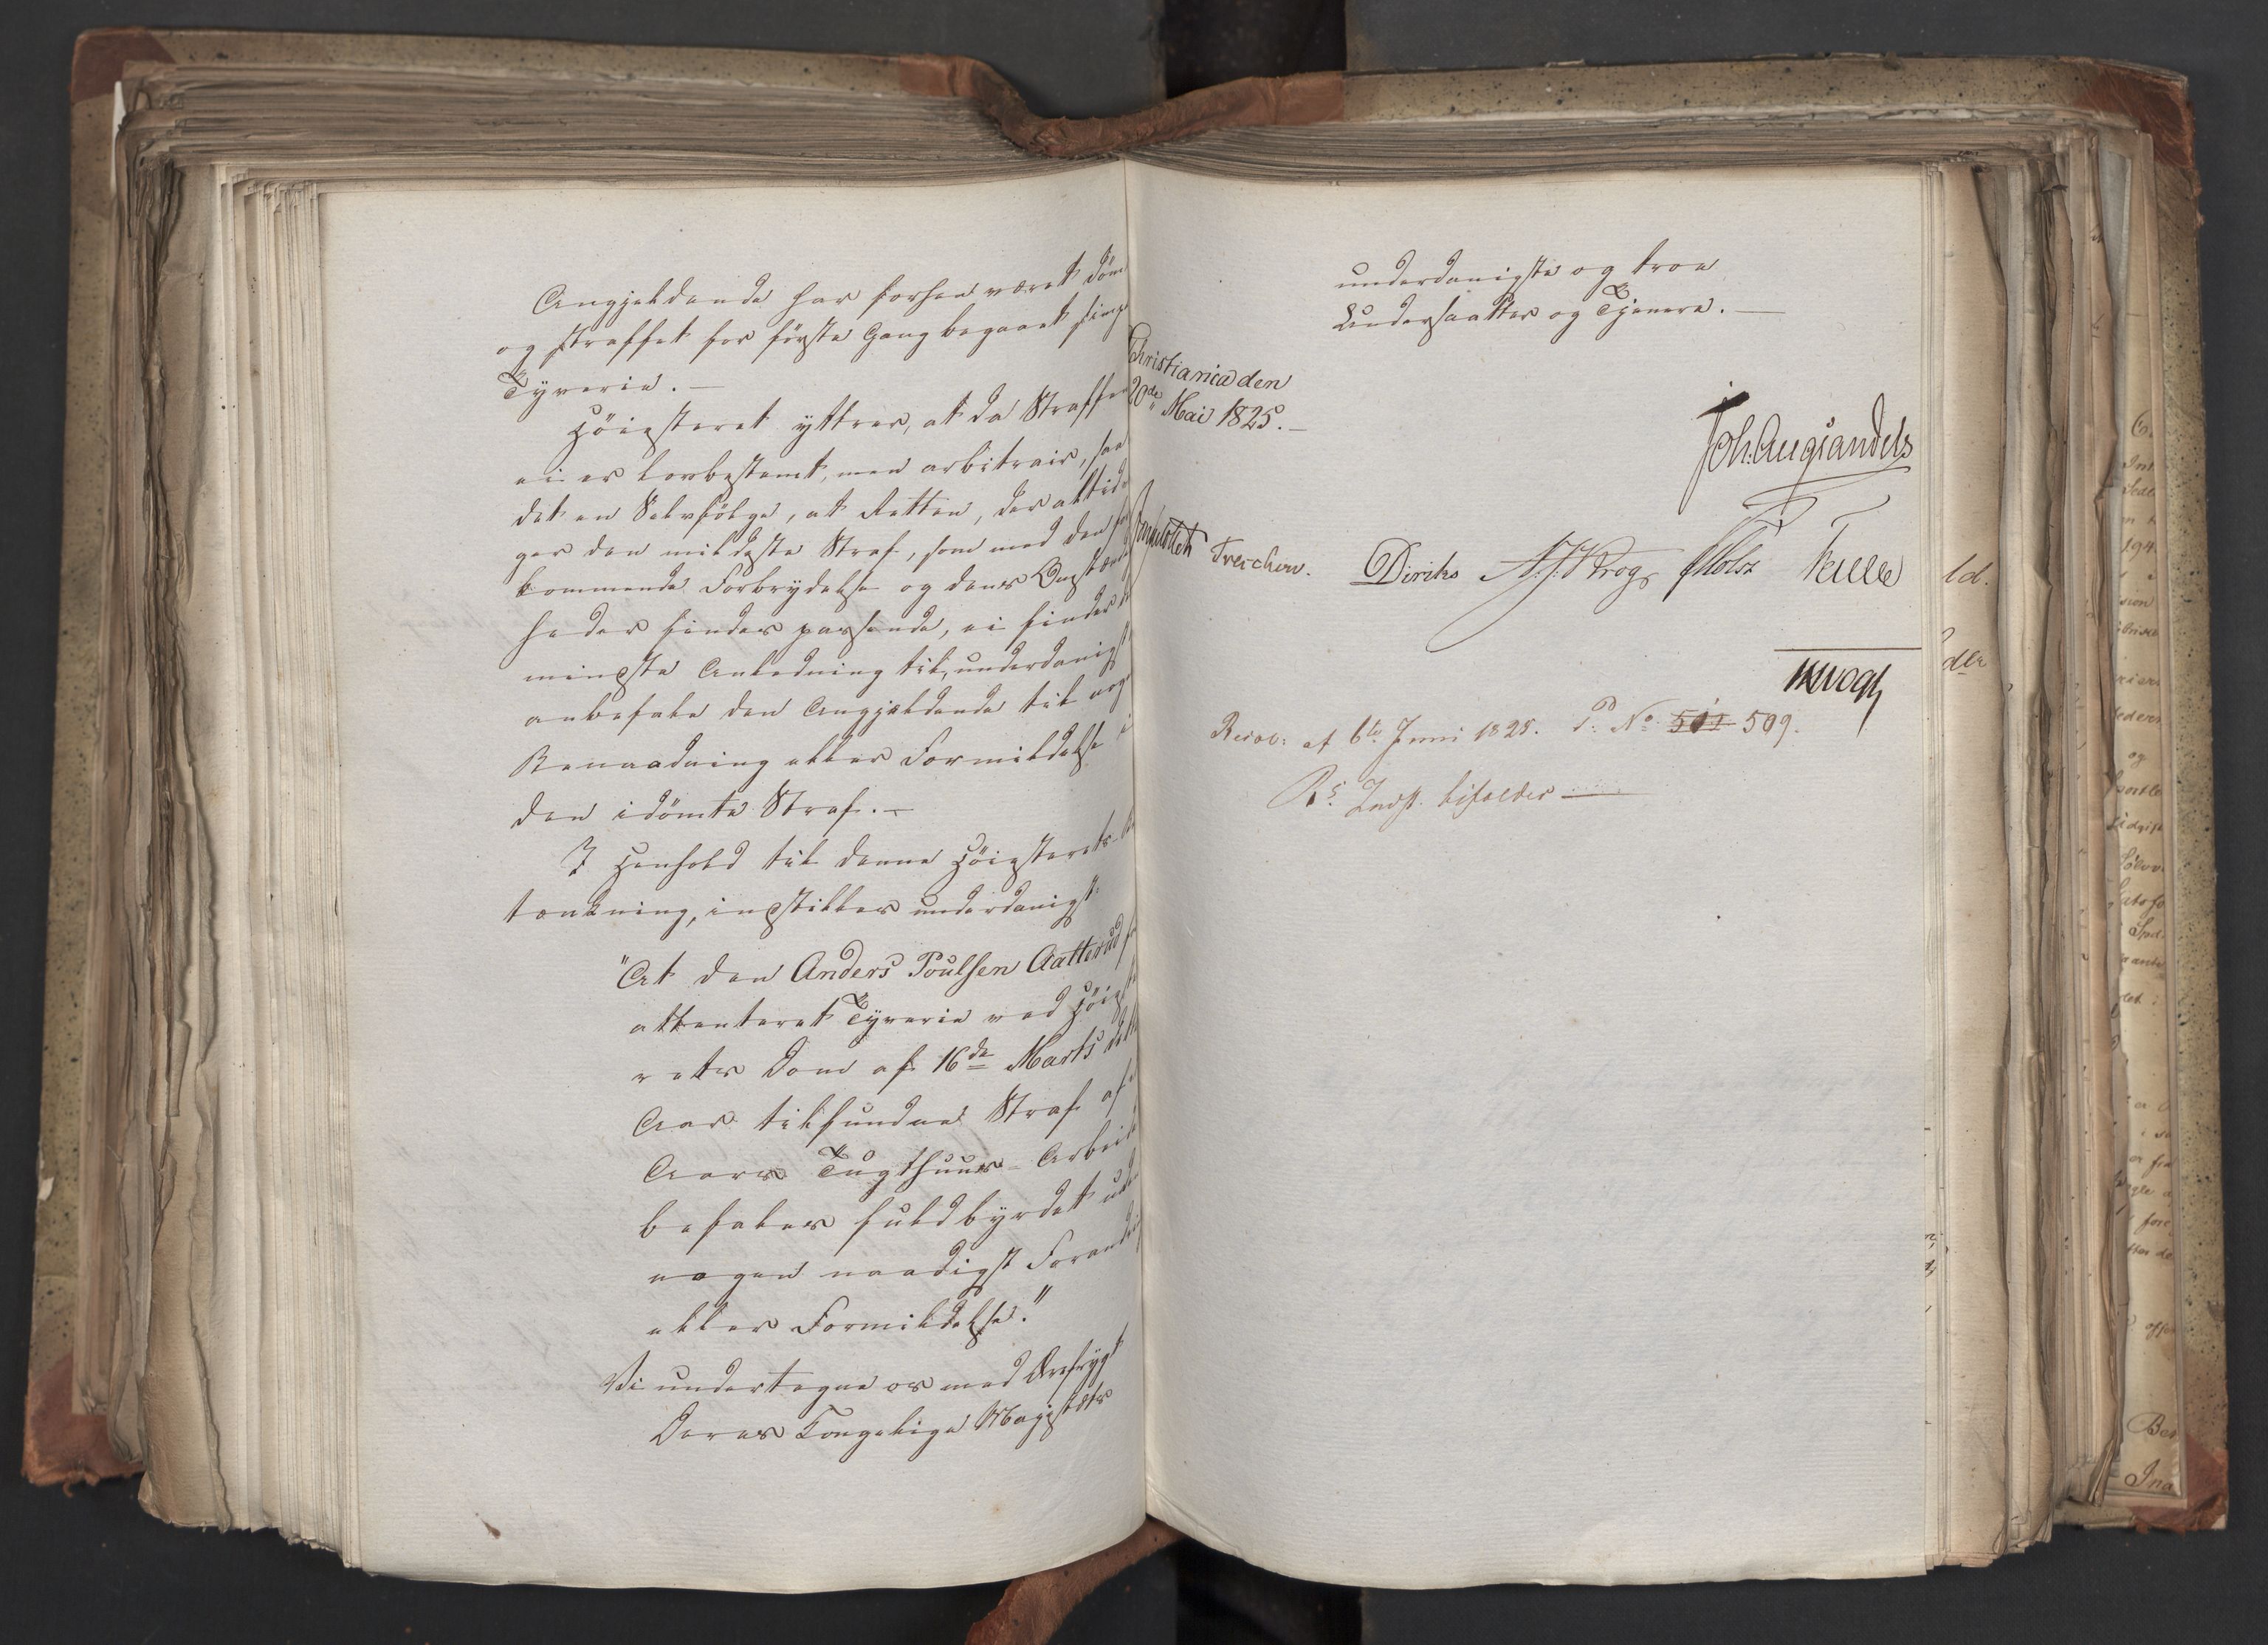 Angjeldende har forhen været döm
og straffet for förste Gang begaaet simp
Tyverie. —
Höiesteret yttrer, at da Straffen
ei er lovbestemt, men arbitrair, saa
det en Selvfölge, at Retten, der altid
ger den mildeste Straf, som med den for
kommende Forbrydelse og dens Omstæn
heder findes passende, ei finder
mindste Anledning til, underdanigst
anbefale den Angjældende til nog
Benaadning eller Formildelse i
den idömte Straf. —
I Henhold til denne Höiesterets-
tænkning, indstilles underdanigst:
"At den Anders Poulsen Aatterud
attenteret Tyverie ved Höieste
rets Dom af 16de Marts dette
Aar tilfundne Straf af
Aars Tugthuus-Arbeide
befales fuldbyrdet uden
nogen naadigst Forandring
eller Formildelse."
Vi undertegne os med Ærefrygt
Deres Kongelige Majestæts
underdanigste og troe
Undersaatter og Tjenere. —
Christiania den
20de Mai 1825. —
Joh. Aug. Sandels
Treschow.
Diriks
Krog
Holst
Krogh
Resol: af 6te Juni 1825. P: No 509.
Rs Indst. bifaldes —